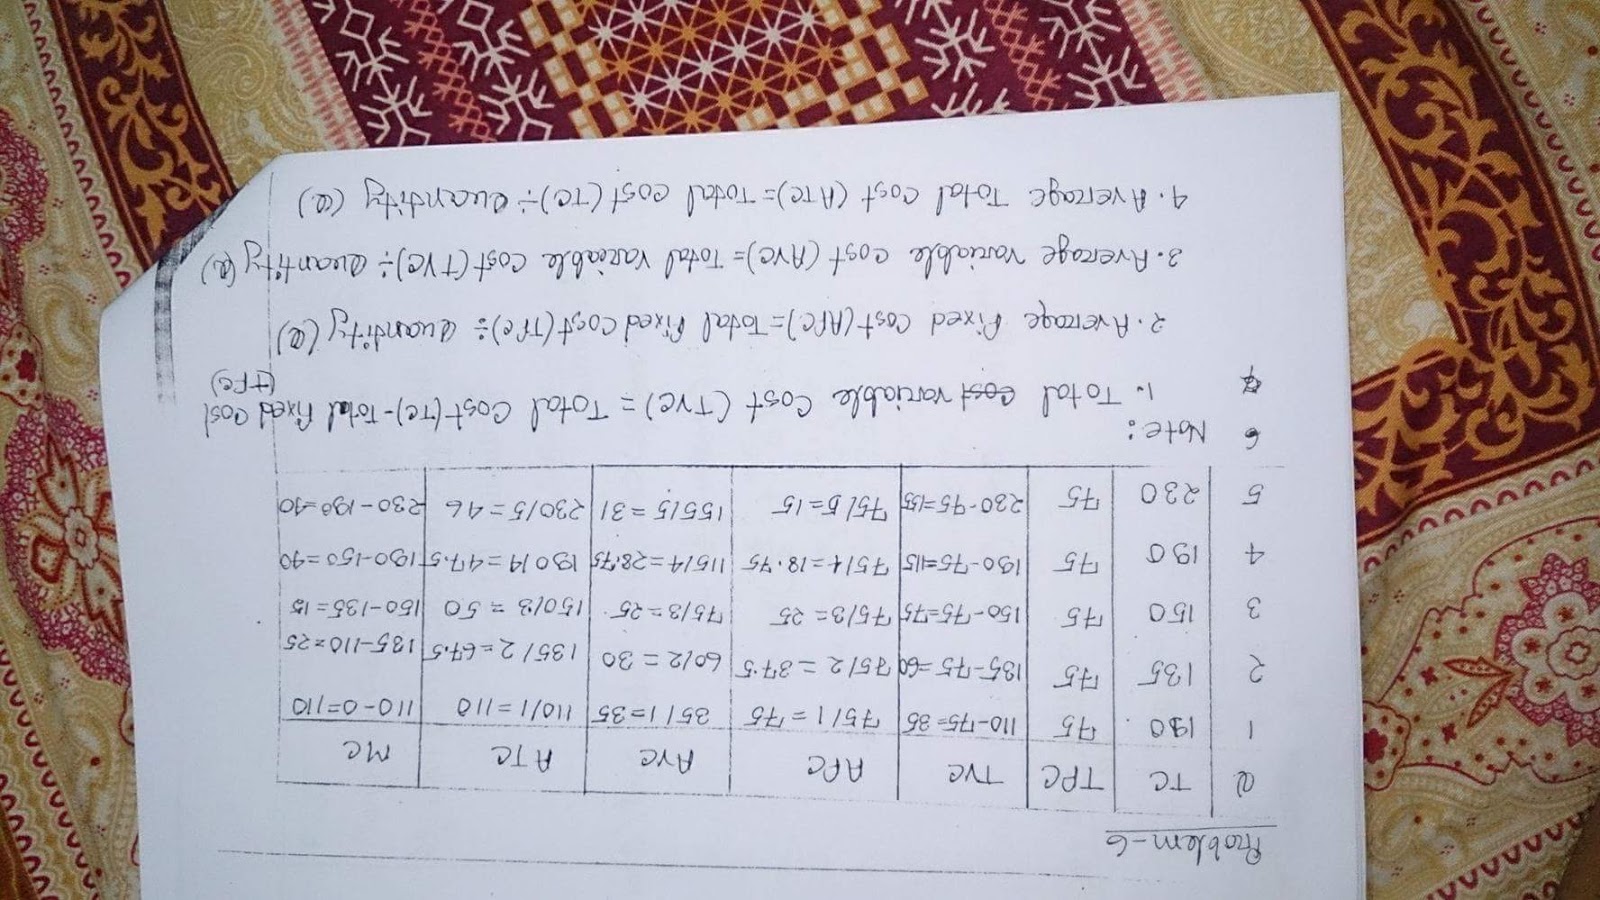 Problem-6
Q TC TFC TVC AFC AVC ATC MC
1 190 75 110-75=35 75/1=75 35/1=35 110/1=110 110-0=110
2 135 75 135-75=60 75/2=37.5 60/2=30 135/2=67.5 135-110=25
3 150 75 150-75=75 75/3=25 75/3=25 150/3=50 150-135=15
4 190 75 190-75=115 75/4=18.75 115/4=28.75 190/4=47.5 190-150=40
5 230 75 230-75=155 75/5=15 155/5=31 230/5=46 230-190=40
6 Note:
7 1. Total cost variable Cost (TVC) = Total Cost (TC)-Total Fixed Cost (TFC)
2. Average Fixed Cost (AFC)=Total Fixed Cost (TFC)÷Quantity (Q)
3. Average variable cost (AVC)=Total variable cost (TVC)÷Quantity (Q)
4. Average Total cost (ATC)=Total cost (TC)÷Quantity (Q)